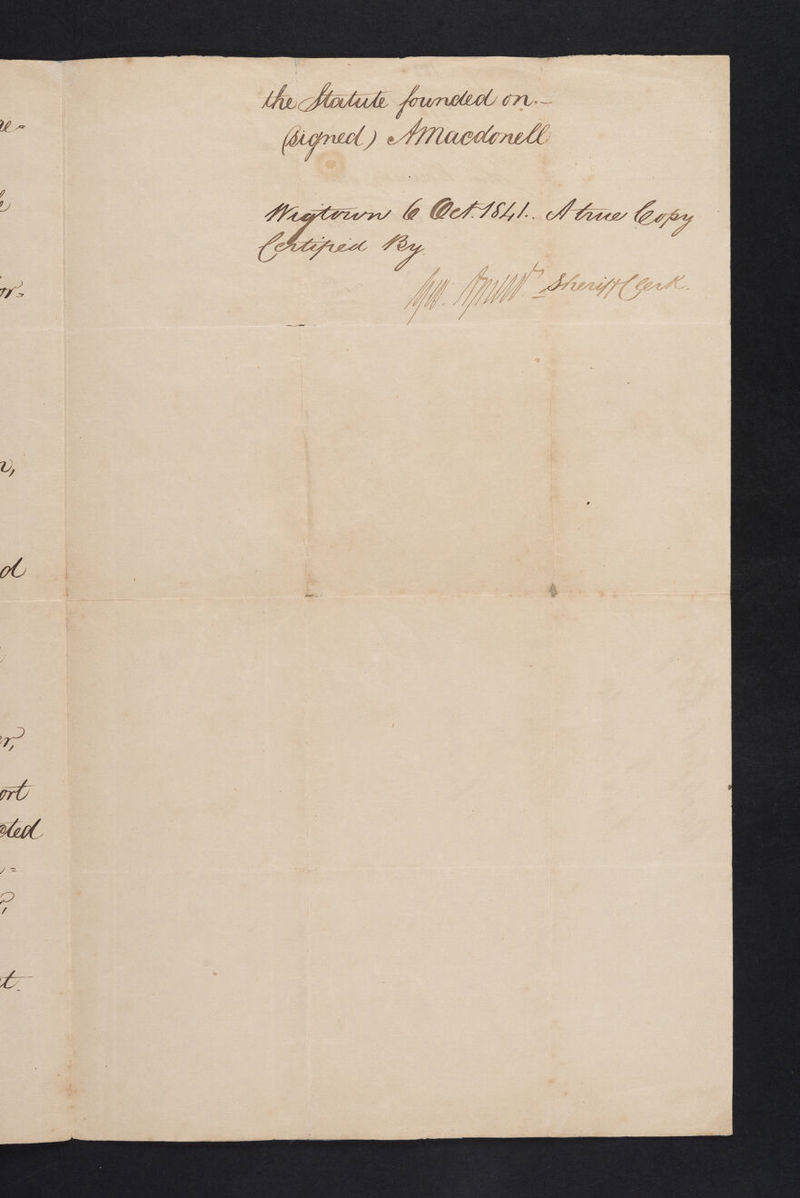 ort
cted
the Statute founded on.-
(signed) AMacdonell
Wigtown 6 Oct. 1841. A true Copy
Certified By
Sheriff Clerk.